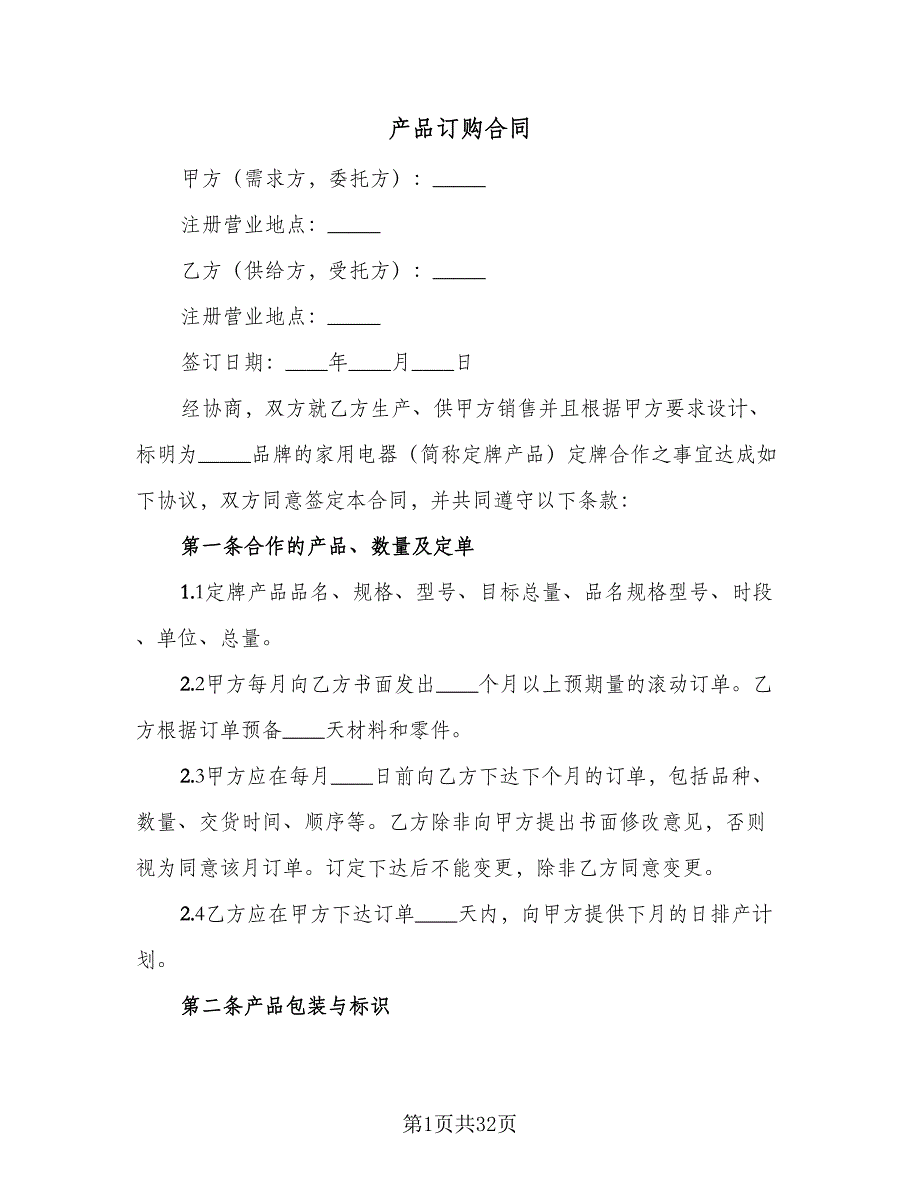 产品订购合同
甲方（需求方，委托方）：_____
注册营业地点：_____
乙方（供给方，受托方）：_____
注册营业地点：_____
签订日期：____年____月____日
经协商，双方就乙方生产、供甲方销售并且根据甲方要求设计、
标明为_____品牌的家用电器（简称定牌产品）定牌合作之事宜达成如
下协议，双方同意签定本合同，并共同遵守以下条款：
第一条合作的产品、数量及定单
1.1定牌产品品名、规格、型号、目标总量、品名规格型号、时段
、单位、总量。
2.2甲方每月向乙方书面发出____个月以上预期量的滚动订单。乙
方根据订单预备____天材料和零件。
2.3甲方应在每月____日前向乙方下达下个月的订单，包括品种、
数量、交货时间、顺序等。乙方除非向甲方提出书面修改意见，否则
视为同意该月订单。订定下达后不能变更，除非乙方同意变更。
2.4乙方应在甲方下达订单____天内，向甲方提供下月的日排产计
划。
第二条产品包装与标识
第1页共32页